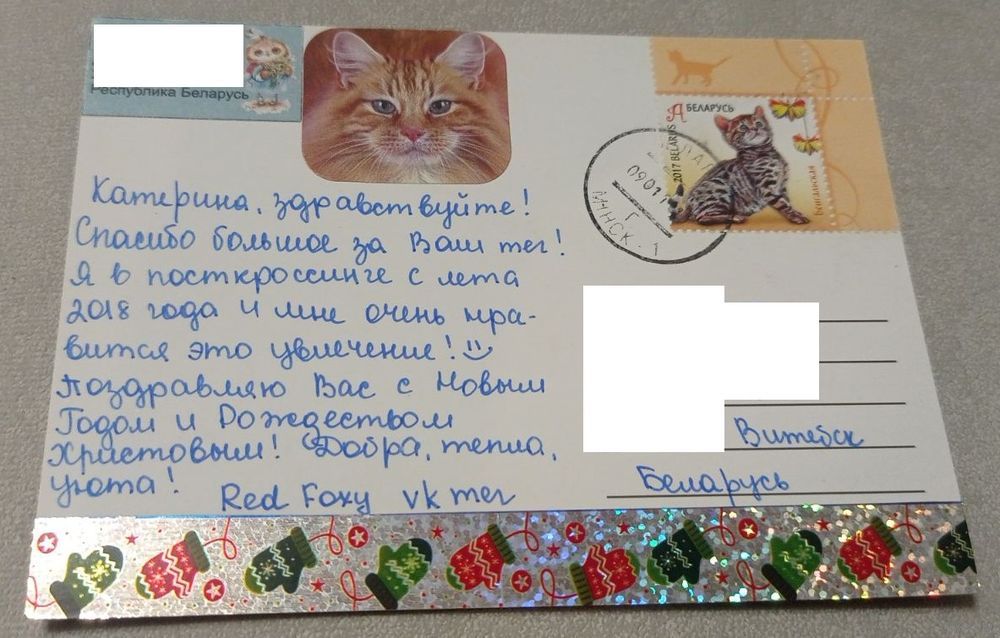 Республика Беларусь
А БЕЛАРУСЬ
2017 BELARUS
Бенгальская
МИНСК - 1
Катерина, здравствуйте!
Спасибо большое за Ваш тег!
Я в посткроссинге с лета
2018 года и мне очень нра-
вится это увлечение!
Поздравляю Вас с Новым
Годом и Рождеством
Христовым! Добра, тепла,
уюта!
Red Foxy vk тег
Витебск
Беларусь